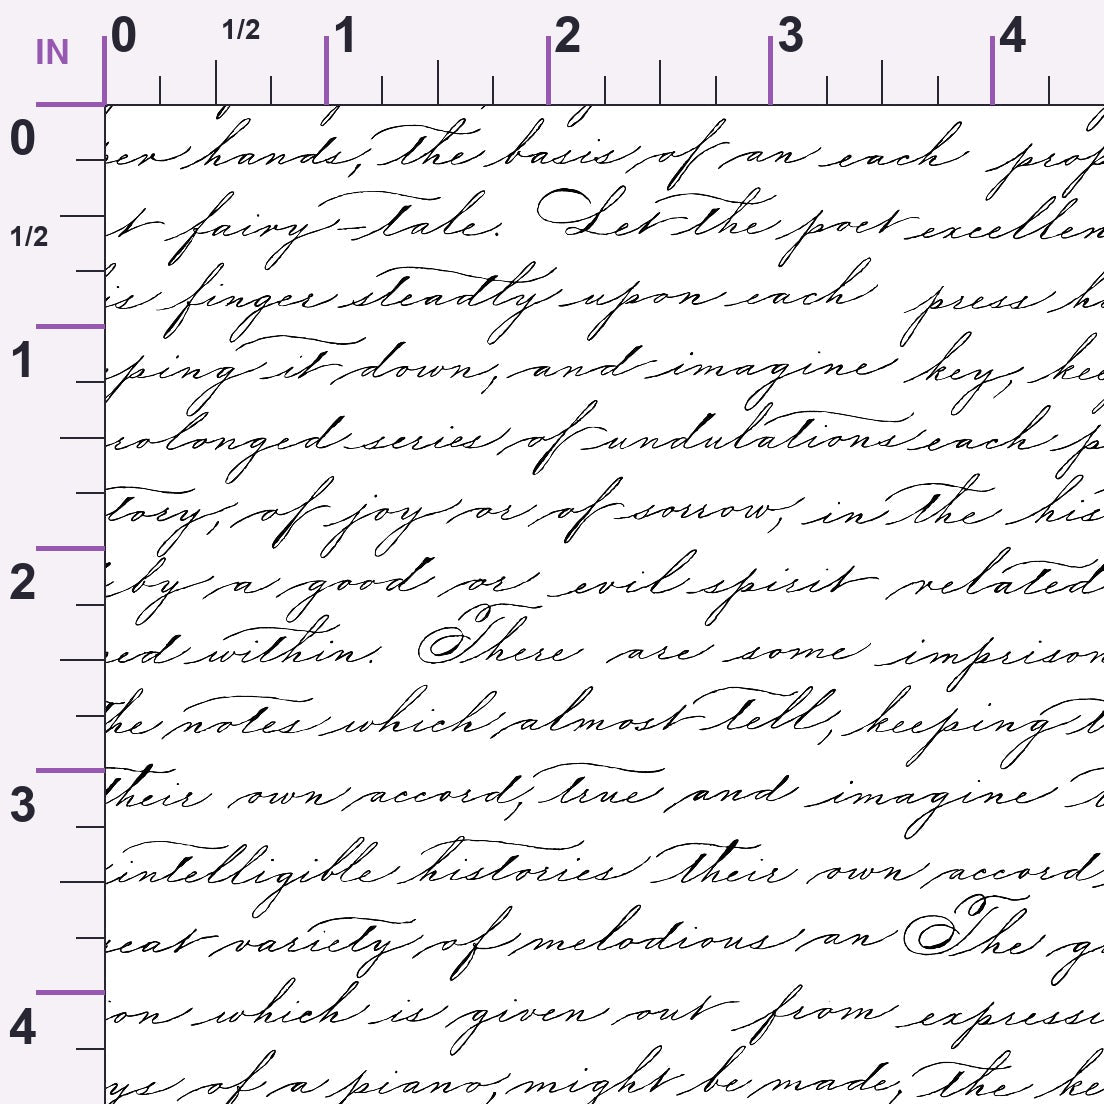 IN 0 1/2 1 2 3 4
0 er hands, the basis of an each prop
1/2 t fairy-tale. Let the poet excellen
is finger steadtly upon each press h
1 ping it down, and imagine key, kee
rolonged series of undulations each p
tory, of joy or of sorrow, in the his
2 by a good or evil spirit related
ed within. There are some imprison
he notes which almost tell, keeping t
3 their own accord, true and imagine
intelligible histories their own accord,
eat variety of melodious an The g
4 on which is given out from expressi
ys of a piano, might be made, the ke